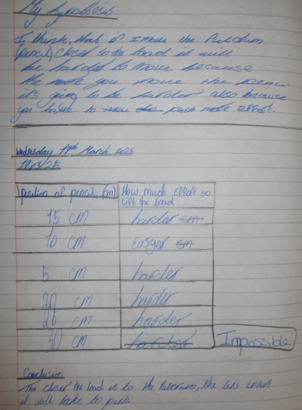 My hypothesis
I think that if I move the
(pencil) closer to the load it will
be harder to move because
the more you move the
it's going to be harder also because
you have to push more effort.
Wednesday March
position of pencil How much effort to
lift the load
15 cm harder
10 cm
5 cm harder
20 cm harder
cm harder
30 cm Impossible
Conclusion
The closer the load is to the the less effort
it will take to push